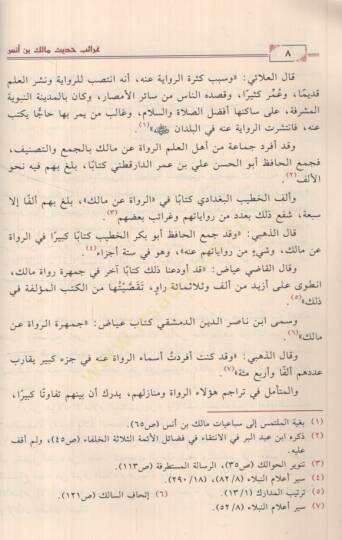 ٨
غرائب حديث مالك بن أنس
قال العلائي: «وسبب كثرة الرواية عنه، أنه انتصب للرواية ونشر العلم
قديمًا، وعُمِّر كثيرًا، وقصده الناس من سائر الأمصار، وكان بالمدينة النبوية
المشرفة، على ساكنها أفضل الصلاة والسلام، وغالب من يمر بها حاجًّا يكتب
عنه، فانتشرت الرواية عنه في البلدان»(١).
وقد أفرد جماعة من أهل العلم الرواة عن مالك بالجمع والتصنيف،
فجمع الحافظ أبو الحسن علي بن عمر الدارقطني كتابًا، بلغ بهم فيه نحو
الألف(٢).
وألف الخطيب البغدادي كتابًا في «الرواة عن مالك»، بلغ بهم ألفًا إلا
سبعة، شفع ذلك بعدد من رواياتهم وغرائب بعضهم(٣).
قال الذهبي: «وقد جمع الحافظ أبو بكر الخطيب كتابًا كبيرًا في الرواة
عن مالك، وشيءٍ من رواياتهم عنه»، وهو في ستة أجزاء(٤).
وقال القاضي عياض: «قد أودعنا ذلك كتابًا آخر في جمهرة رواة مالك،
انطوى على أزيد من ألف وثلاثمائة راوٍ، تَقَصَّيْتُها من الكتب المؤلفة في
ذلك»(٥).
وسمى ابن ناصر الدين الدمشقي كتاب عياض: «جمهرة الرواة عن
مالك»(٦).
وقال الذهبي: «وقد كنت أفردتُ أسماء الرواة عنه في جزء كبير يقارب
عددهم ألفًا وأربع مئة»(٧).
والمتأمل في تراجم هؤلاء الرواة ومنازلهم، يدرك أن بينهم تفاوتًا كبيرًا،
(١) بغية الملتمس إلى سباعيات مالك بن أنس (ص٦٥).
(٢) ذكره ابن عبد البر في الانتقاء في فضائل الأئمة الثلاثة الخلفاء (ص٤٥)، ولم أقف
عليه.
(٣) تنوير الحوالك (ص٣٥)، الرسالة المستطرفة (ص١١٣).
(٤) سير أعلام النبلاء (٨٢/٨)، (٢٩٠/١٨).
(٥) ترتيب المدارك (١٣/١). (٦) إتحاف السالك (ص١٢١).
(٧) سير أعلام النبلاء (٥٢/٨).